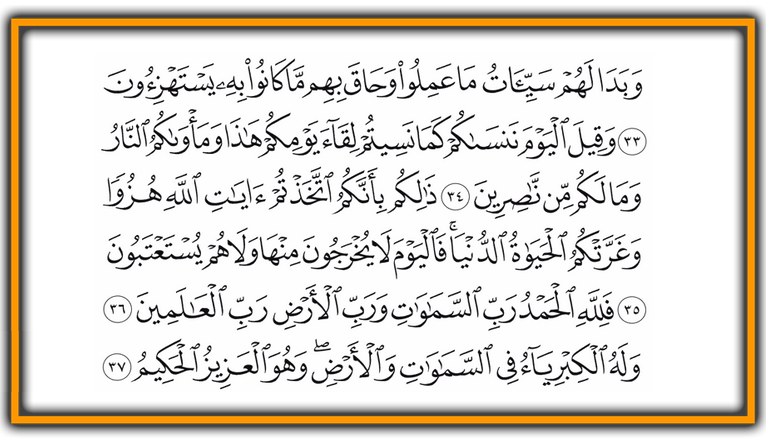 وَبَدَا لَهُمْ سَيِّـَٔاتُ مَا عَمِلُوا۟ وَحَاقَ بِهِم مَّا كَانُوا۟ بِهِۦ يَسْتَهْزِءُونَ
٣٣ وَقِيلَ ٱلْيَوْمَ نَنسَىٰكُمْ كَمَا نَسِيتُمْ لِقَآءَ يَوْمِكُمْ هَٰذَا وَمَأْوَىٰكُمُ ٱلنَّارُ
وَمَا لَكُم مِّن نَّٰصِرِينَ ٣٤ ذَٰلِكُم بِأَنَّكُمُ ٱتَّخَذْتُمْ ءَايَٰتِ ٱللَّهِ هُزُوًا
وَغَرَّتْكُمُ ٱلْحَيَوٰةُ ٱلدُّنْيَا ۚ فَٱلْيَوْمَ لَا يُخْرَجُونَ مِنْهَا وَلَا هُمْ يُسْتَعْتَبُونَ
٣٥ فَلِلَّهِ ٱلْحَمْدُ رَبِّ ٱلسَّمَٰوَٰتِ وَرَبِّ ٱلْأَرْضِ رَبِّ ٱلْعَٰلَمِينَ ٣٦
وَلَهُ ٱلْكِبْرِيَآءُ فِى ٱلسَّمَٰوَٰتِ وَٱلْأَرْضِ ۖ وَهُوَ ٱلْعَزِيزُ ٱلْحَكِيمُ ٣٧